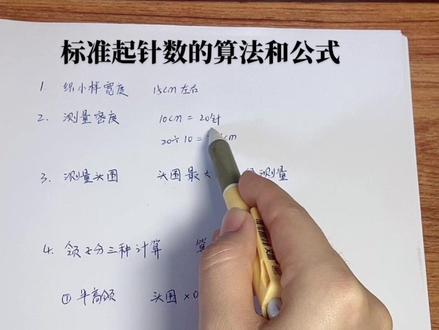 标准起针数的算法和公式
1. 织小样宽度 15cm左右
2. 测量密度 10cm = 20针
20÷10 = cm
3. 测量头围 头围最大 测量
4. 领子分三种计算
① 半高领 头围×0